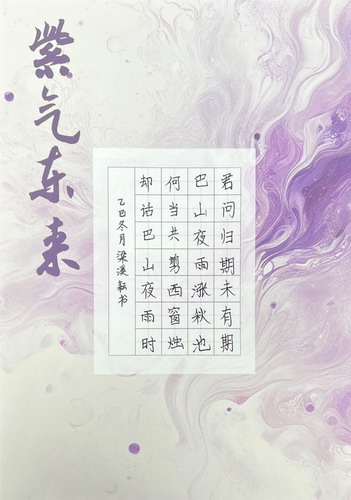 紫气东来
君问归期未有期
巴山夜雨涨秋池
何当共剪西窗烛
却话巴山夜雨时
乙巳冬月 梁溪 书